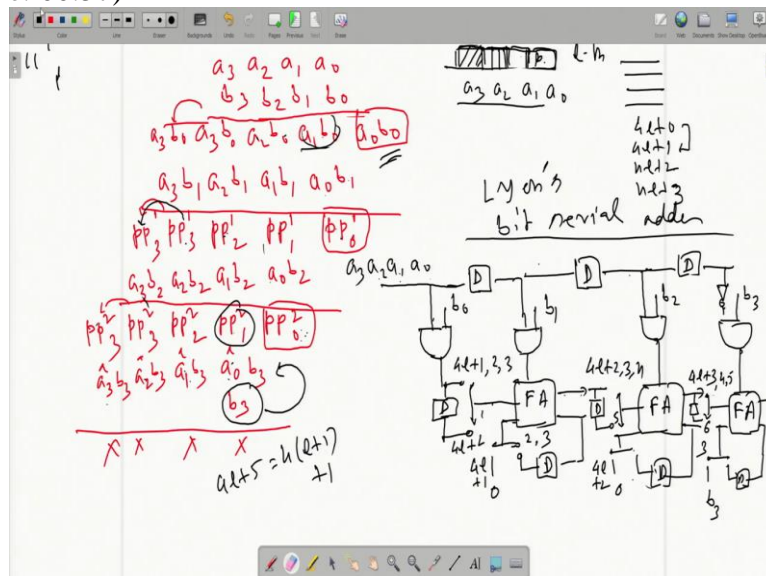 Status
Color
Line
Eraser
Backgrounds
Undo
Redo
Pages
Previous
Next
Erase
Board
Web
Documents
Show Desktop
OpenBoard
a3 a2 a1 a0
b3 b2 b1 b0
a3b0 a3b0 a2b0 a1b0 a0b0
a3b1 a2b1 a1b1 a0b1
pp3^1 pp3^1 pp2^1 pp1^1 pp0^1
a3b2 a2b2 a1b2 a0b2
pp3^2 pp3^2 pp2^2 pp1^2 pp0^2
â3b3 â2b3 â1b3 â0b3
b3
x x x x
4l+5 = 4(l+1)
+1
a3 a2 a1 a0
4l+0
4l+1
4l+2
4l+3
Lyon's
bit serial adder
a3 a2 a1 a0
D D D
b0 b1 b2 b3
4l+1,2,3 4l+2,3,4 4l+3,4,5
D FA D FA FA
4l+1 0
2,3
D
4l+2 0
D
b3